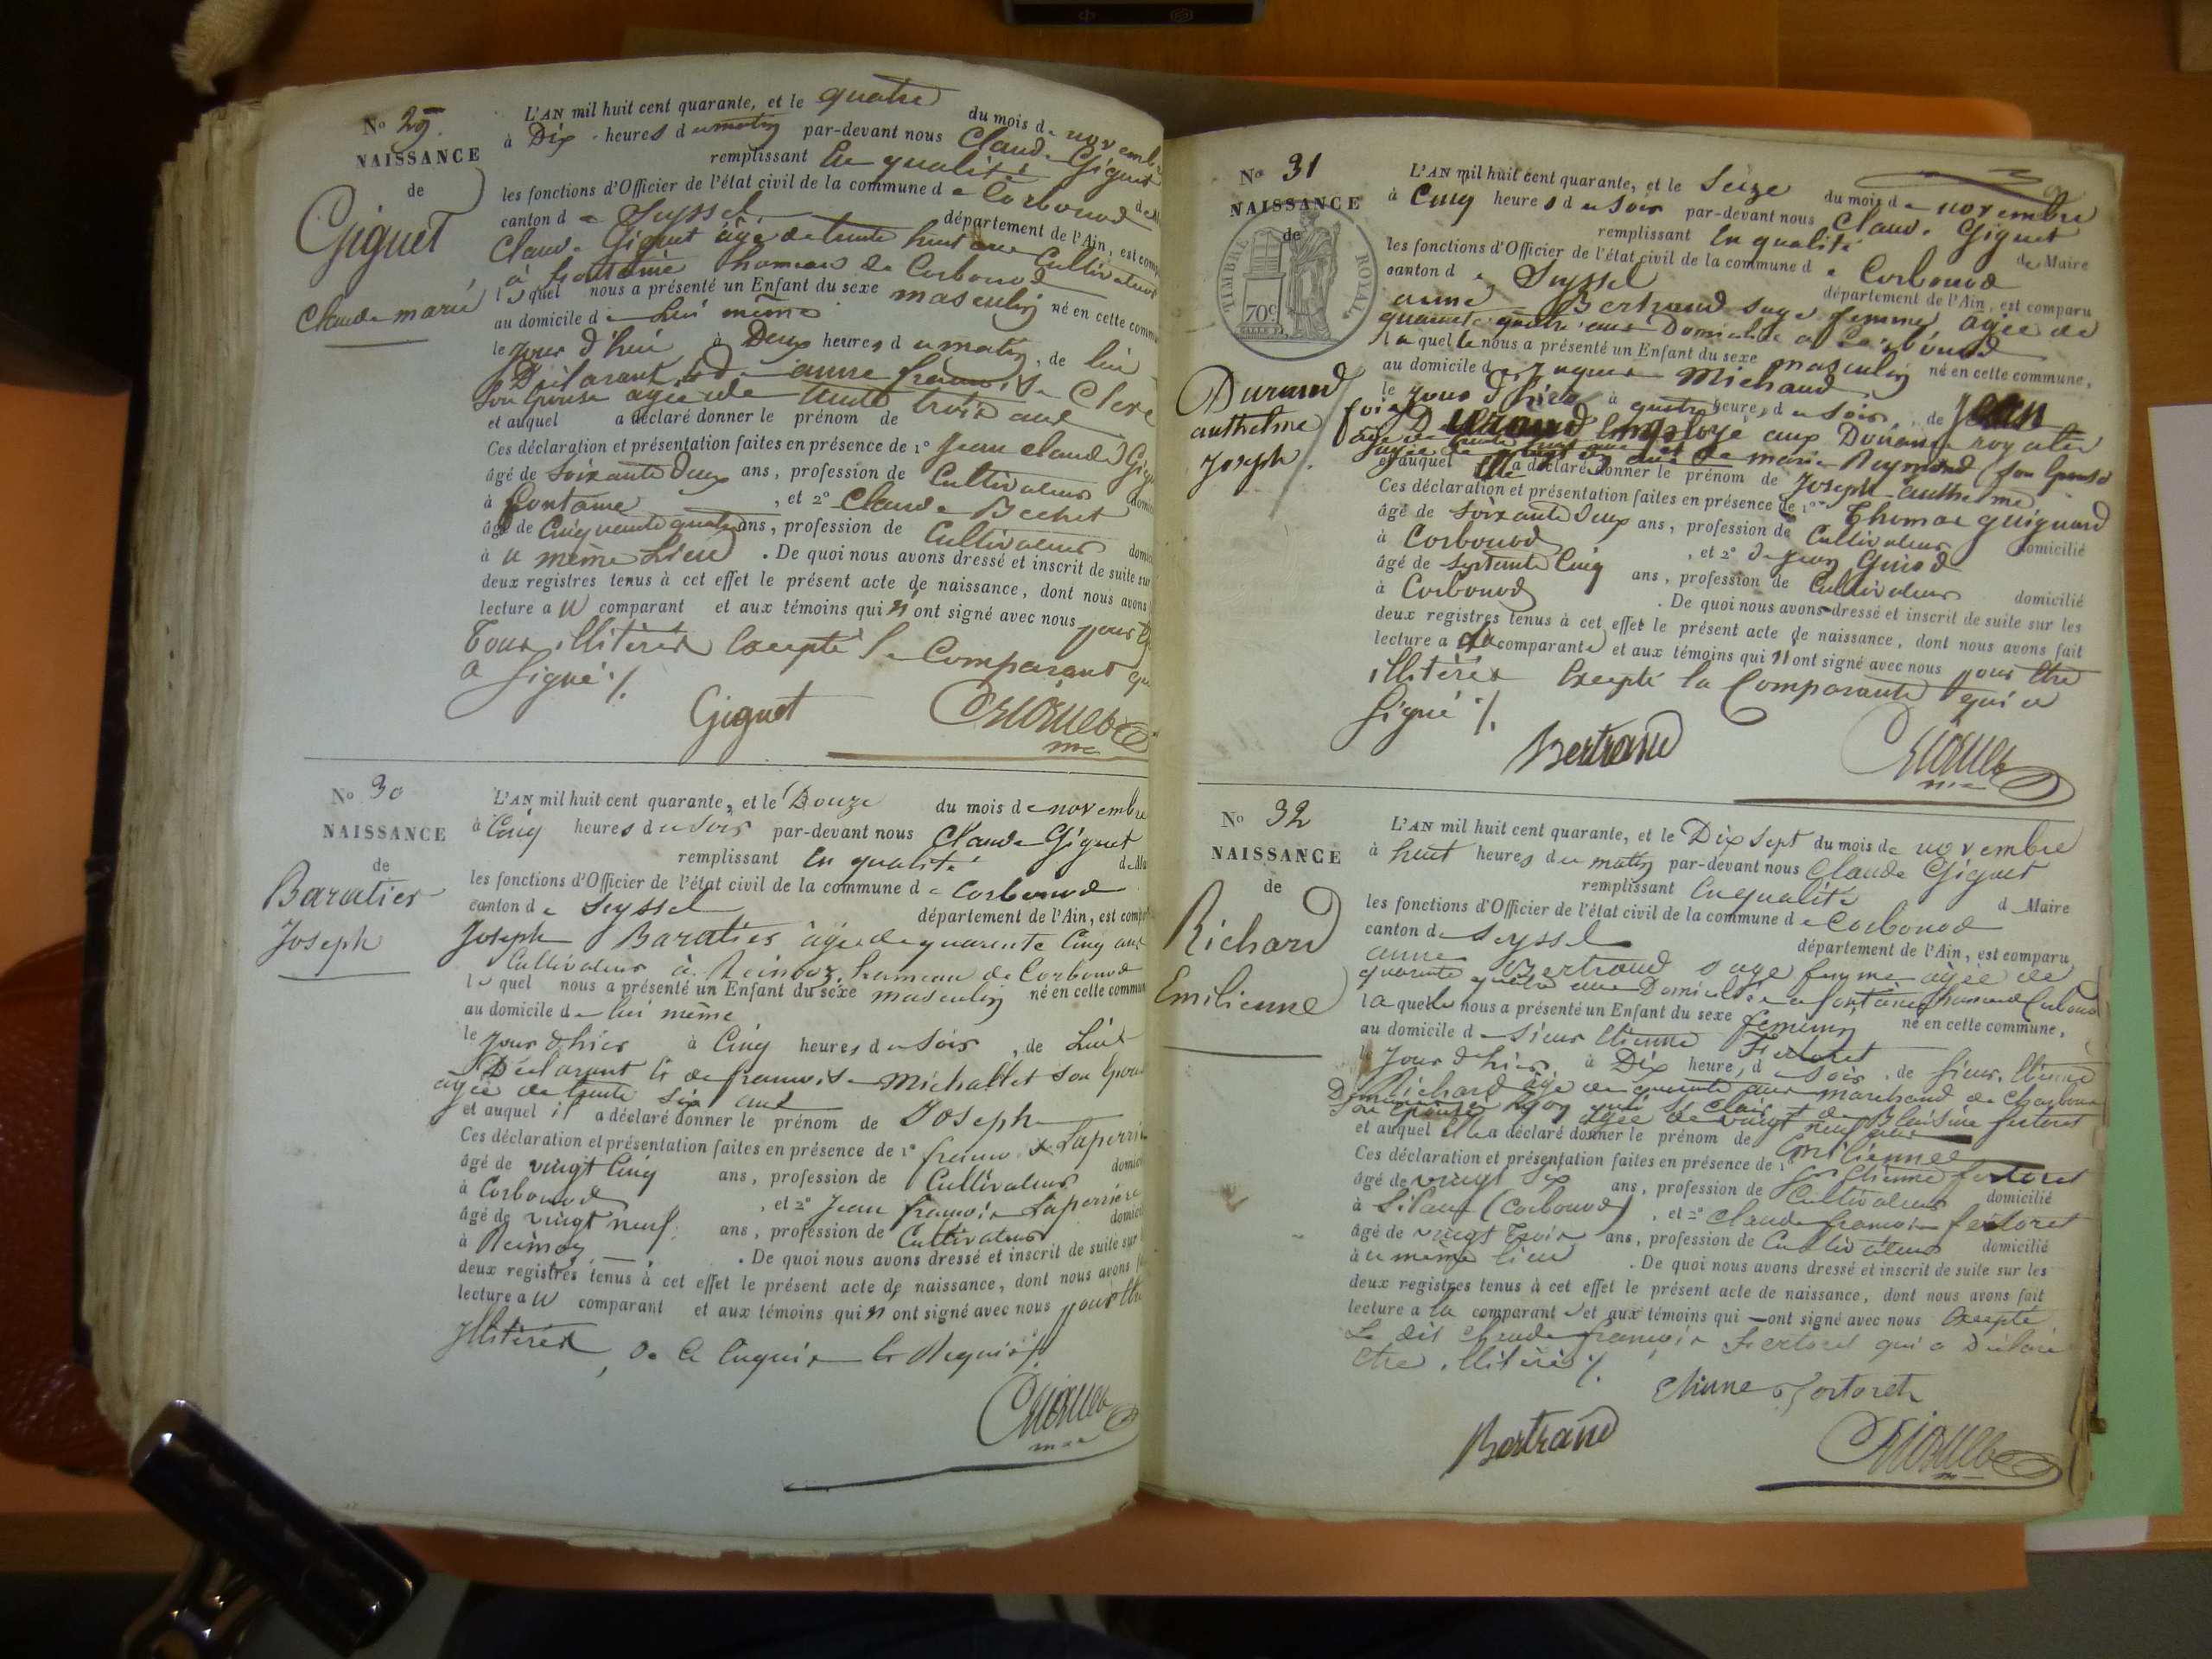 No 29.
NAISSANCE
de
Giguet
Claude marie
L'AN mil huit cent quarante, et le quatre du mois de novembre
à Dix heures du matin par-devant nous Claude Giguet
remplissant En qualité de
les fonctions d'Officier de l'état civil de la commune de Corbonod
canton de Seyssel département de l'Ain, est comp
Claude Giguet âgé de trente huit ans Cultivateur
à fontaine hameau de Corbonod
lequel nous a présenté un Enfant du sexe masculin né en cette comm
au domicile de Lui même
le jour d'hui à Deux heures du matin, de lui
Déclarant et de anne françoise Clerc
Son épouse agée de trente trois ans
et auquel a déclaré donner le prénom de
Ces déclaration et présentation faites en présence de 1° Jean claude Gigu
âgé de Soixante deux ans, profession de Cultivateur domi
à fontaine, et 2° Claude Bechet
âgé de Cinquante quatre ans, profession de Cultivateur domi
à u même Lieu. De quoi nous avons dressé et inscrit de suite sur
deux registres tenus à cet effet le présent acte de naissance, dont nous avons
lecture a u comparant et aux témoins qui n'ont signé avec nous pour
Tous illitérés Excepté le Comparant qu
a signé ./.
Giguet
No 30
NAISSANCE
de
Baratier
Joseph
L'AN mil huit cent quarante, et le Douze du mois de novembre
à Cinq heures du soir par-devant nous Claude Giguet
remplissant En qualité de Ma
les fonctions d'Officier de l'état civil de la commune de Corbonod
canton de Seyssel département de l'Ain, est comp
Joseph Baratier âgé de quarente Cinq ans
Cultivateur à hameau de Corbonod
lequel nous a présenté un Enfant du sexe masculin né en cette commun
au domicile de lui même
le jour d'hier à Cinq heures du soir, de Lui
Déclarant et de françoise Michallet son épouse
agée de trente six ans
et auquel il a déclaré donner le prénom de Joseph
Ces déclaration et présentation faites en présence de 1° françois Laperrière
âgé de vingt Cinq ans, profession de Cultivateur domici
à Corbonod, et 2° Jean françois Laperrière
âgé de vingt neuf ans, profession de Cultivateur domici
à. De quoi nous avons dressé et inscrit de suite sur
deux registres tenus à cet effet le présent acte de naissance, dont nous avons
lecture a u comparant et aux témoins qui n'ont signé avec nous pour être
Illitérés, de ce Enquis et Requis ./.
No 31
NAISSANCE
de
TIMBRE ROYAL
70c
Durand
anthelme
Joseph
L'AN mil huit cent quarante, et le Seize du mois de novembre
à Cinq heures du soir par-devant nous Claude Giguet
remplissant En qualité de Maire
les fonctions d'Officier de l'état civil de la commune de Corbonod
canton de Seyssel département de l'Ain, est comparu
anne Bertrand sage femme, âgée de
quarante quatre ans Domiciliée à Corbonod
laquelle nous a présenté un Enfant du sexe masculin né en cette commune,
au domicile de Jaques Michaud
le jour d'hier à quatre heures du soir, de Jean
Durand Employé aux Douanes royales
et de marie Reymond son épouse
et auquel Elle a déclaré donner le prénom de Joseph anthelme
Ces déclaration et présentation faites en présence de 1° Thomas guignard
âgé de Soixante deux ans, profession de Cultivateur domicilié
à Corbonod, et 2°
âgé de Septente Cinq ans, profession de Cultivateur domicilié
à Corbonod. De quoi nous avons dressé et inscrit de suite sur les
deux registres tenus à cet effet le présent acte de naissance, dont nous avons fait
lecture a la comparante et aux témoins qui n'ont signé avec nous pour être
illitérés Excepté la Comparante qui a
signé ./.
Bertrand
No 32
NAISSANCE
de
Richard
Emilienne
L'AN mil huit cent quarante, et le Dix sept du mois de novembre
à huit heures du matin par-devant nous Claude Giguet
remplissant En qualité d Maire
les fonctions d'Officier de l'état civil de la commune de Corbonod
canton de Seyssel département de l'Ain, est comparu
anne Bertrand sage femme agée de
quarante quatre ans Domiciliée a fontaine hameau Corbonod
laquelle nous a présenté un Enfant du sexe feminin né en cette commune,
au domicile de sieur Etienne Fertoret
le Jour d'hier à Dix heures du soir, de sieur Etienne
Richard âgé de quarente ans marchand de Charbon
Domicilié a Lyon agée de vingt neuf ans
et auquel Elle a déclaré donner le prénom de Emilienne
Ces déclaration et présentation faites en présence de 1° Etienne fertoret
âgé de vingt six ans, profession de Cultivateur domicilié
à (Corbonod), et 2° Claude françois fertoret
âgé de vingt trois ans, profession de Cultivateur domicilié
à u même lieu. De quoi nous avons dressé et inscrit de suite sur les
deux registres tenus à cet effet le présent acte de naissance, dont nous avons fait
lecture a la comparante et aux témoins qui ont signé avec nous Excepté
Le dit Claude françois Fertoret qui a Déclaré
être illitéré ./.
Etienne fertoret
Bertrand